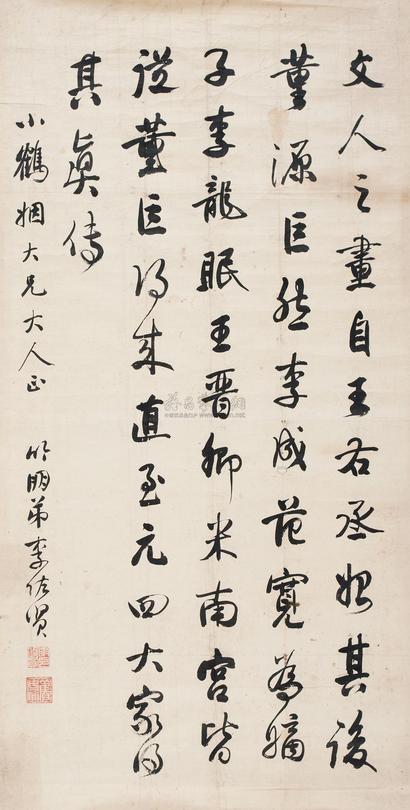 文人之畫自王右丞始其後
董源巨然李成范寬為嫡
子李龍眠王晉卿米南宮皆
從董巨得來直至元四大家得
其真传
小鶴姻大兄大人正
竹朋弟李佐賢